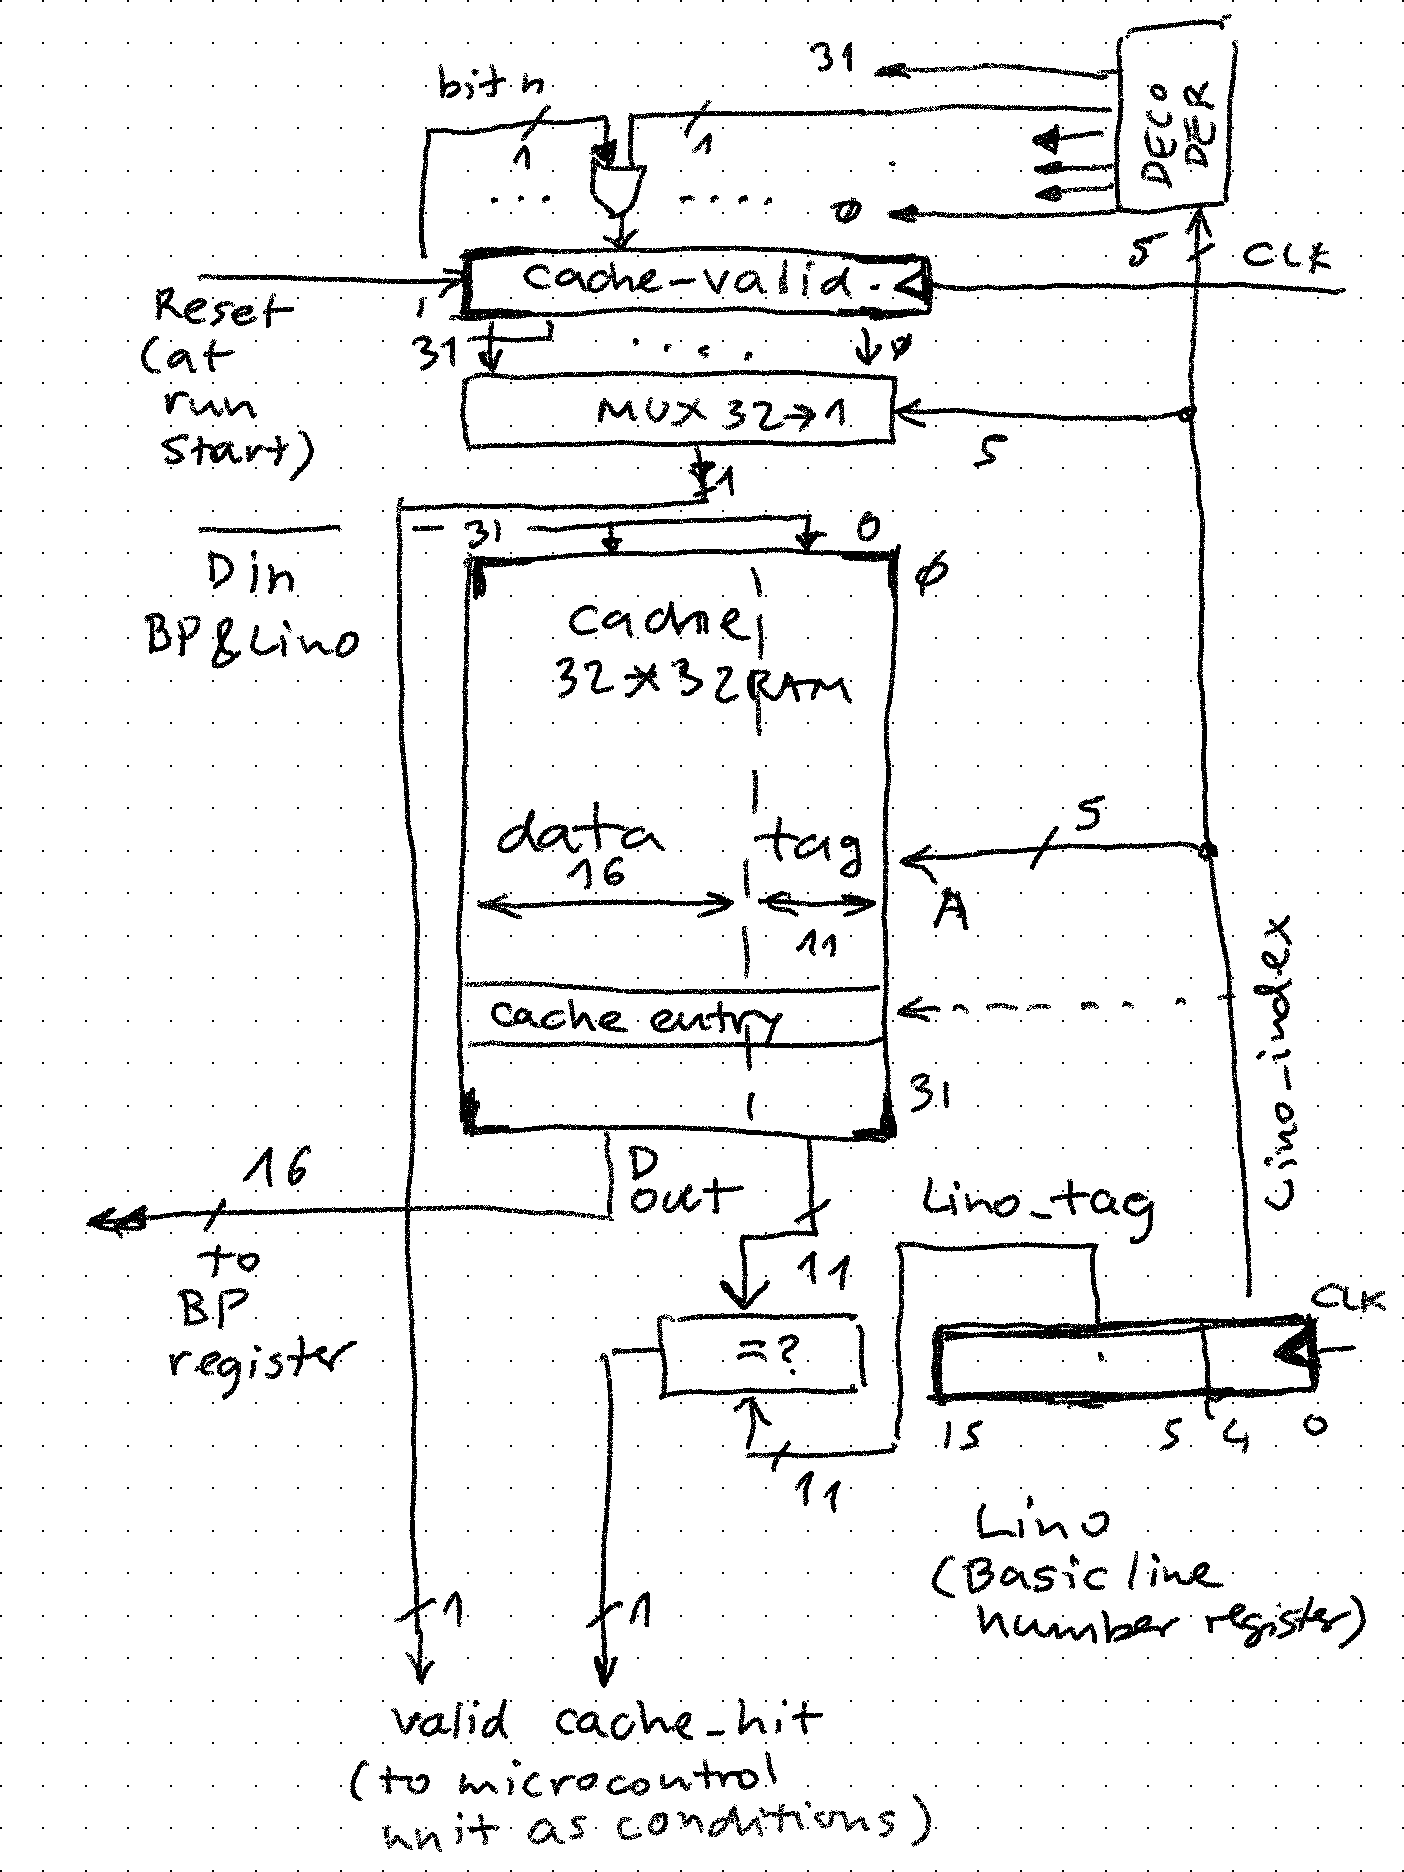 31
bit n
1
1
DECO
DER
.... .... Ø
5
CLK
cache-valid
Reset
(at
run
start)
31 .... Ø
MUX 32→1
5
1
31 0
Din
BP&Lino
Ø
cache
32*32 RAM
data
16
tag
11
5
A
Lino-index
cache entry
31
16
to
BP
register
D
out
11
Lino_tag
CLK
=?
15 5 4 0
11
Lino
(Basic line
number register)
1 1
valid cache_hit
(to microcontrol
unit as conditions)